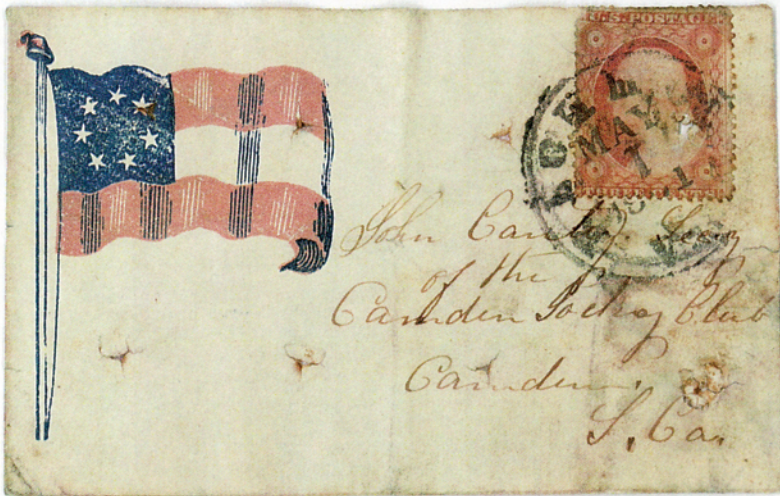 U.S. POSTAGE
MAY
1
1861
John Cantey Secy
of the
Camden Jockey Club
Camden,
S, Ca,